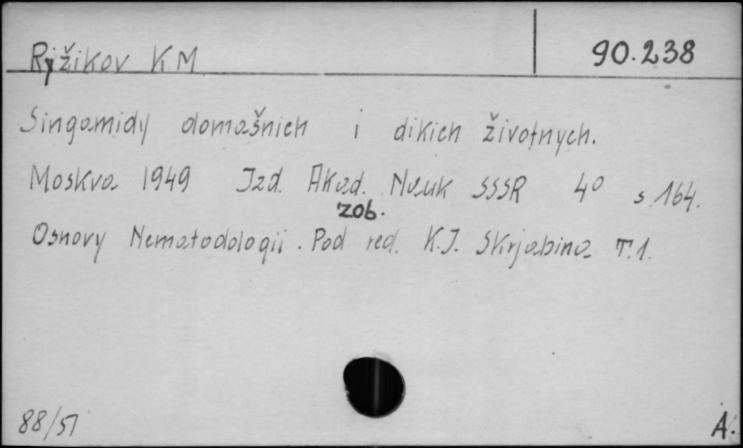 Ryžikov K M
90.238
Singamidy domašnich i dikich životnych.
Moskva 1949 Izd. Akad. Nauk SSSR 4° s.164.
zob.
Osnovy Nematodologii. Pod red. K.I. Skrjabina T.1.
88/51
A.